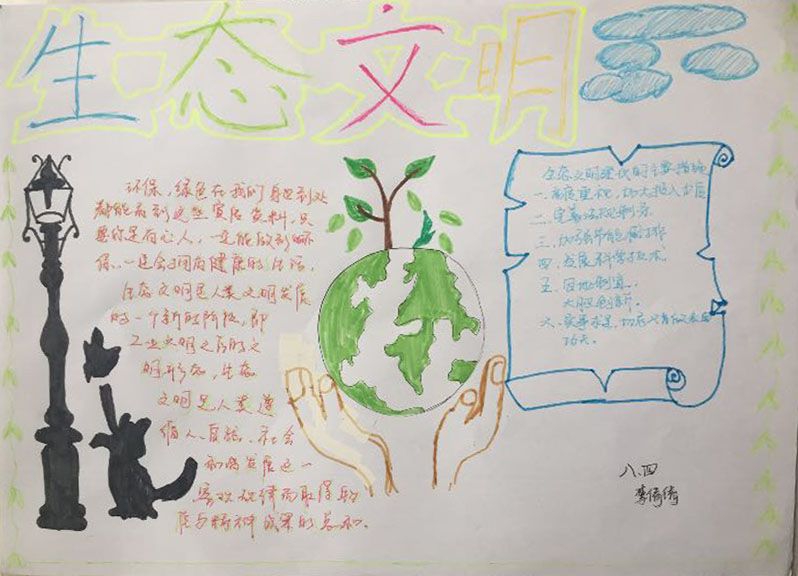 生态文明
环保,绿色在我们身边到处
都能看到这些宣传资料,只
要你是有心人,一定能做到环
保,一定会拥有健康的生活,
生态文明是人类文明发展
的一个新的阶段,即
工业文明之后的文
明形态,生态
文明是人类遵
循人、自然、社会
和谐发展这一
客观规律而取得物
质与精神成果的总和。
生态文明建设的主要措施
一.高度重视,加大投入力度
二.完善法规制度
三.加强节能减排
四.发展科学技术
五.因地制宜,
大胆创新.
六.实事求是,
功夫.
八.四
李倩倩